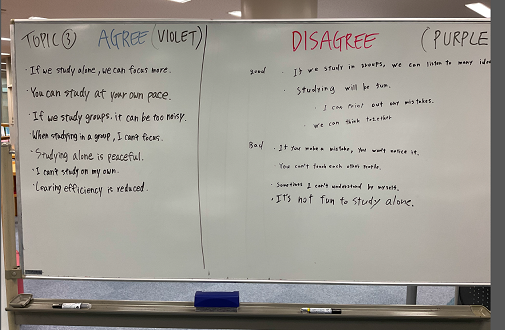 TOPIC ③ AGREE (VIOLET)
· If we study alone, we can focus more.
· You can study at your own pace.
· If we study groups, it can be too noisy.
· When studying in a group, I can't focus.
· Studying alone is peaceful.
· I can't study on my own.
· Learing efficiency is reduced.
DISAGREE (PURPLE
good · If we study in groups, we can listen to many idea
· Studying will be fun.
· I can point out any mistakes.
· we can think together
Bad · If you make a mistake, you won't notice it.
· You can't teach each other
· Sometimes I can't understand by myself.
· It's not fun to study alone.